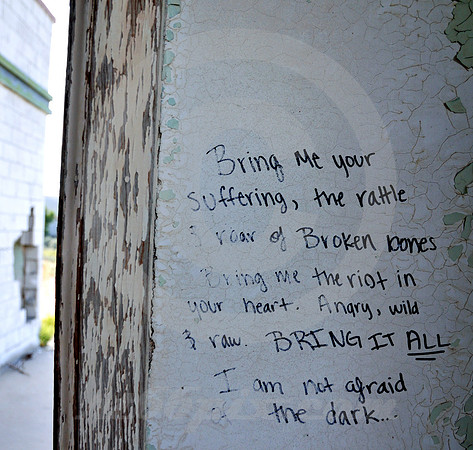 Bring Me your
suffering, the rattle
& roar of Broken bones
Bring me the riot in
your heart. Angry, wild
& raw. BRING IT ALL
. I am not afraid
of the dark...